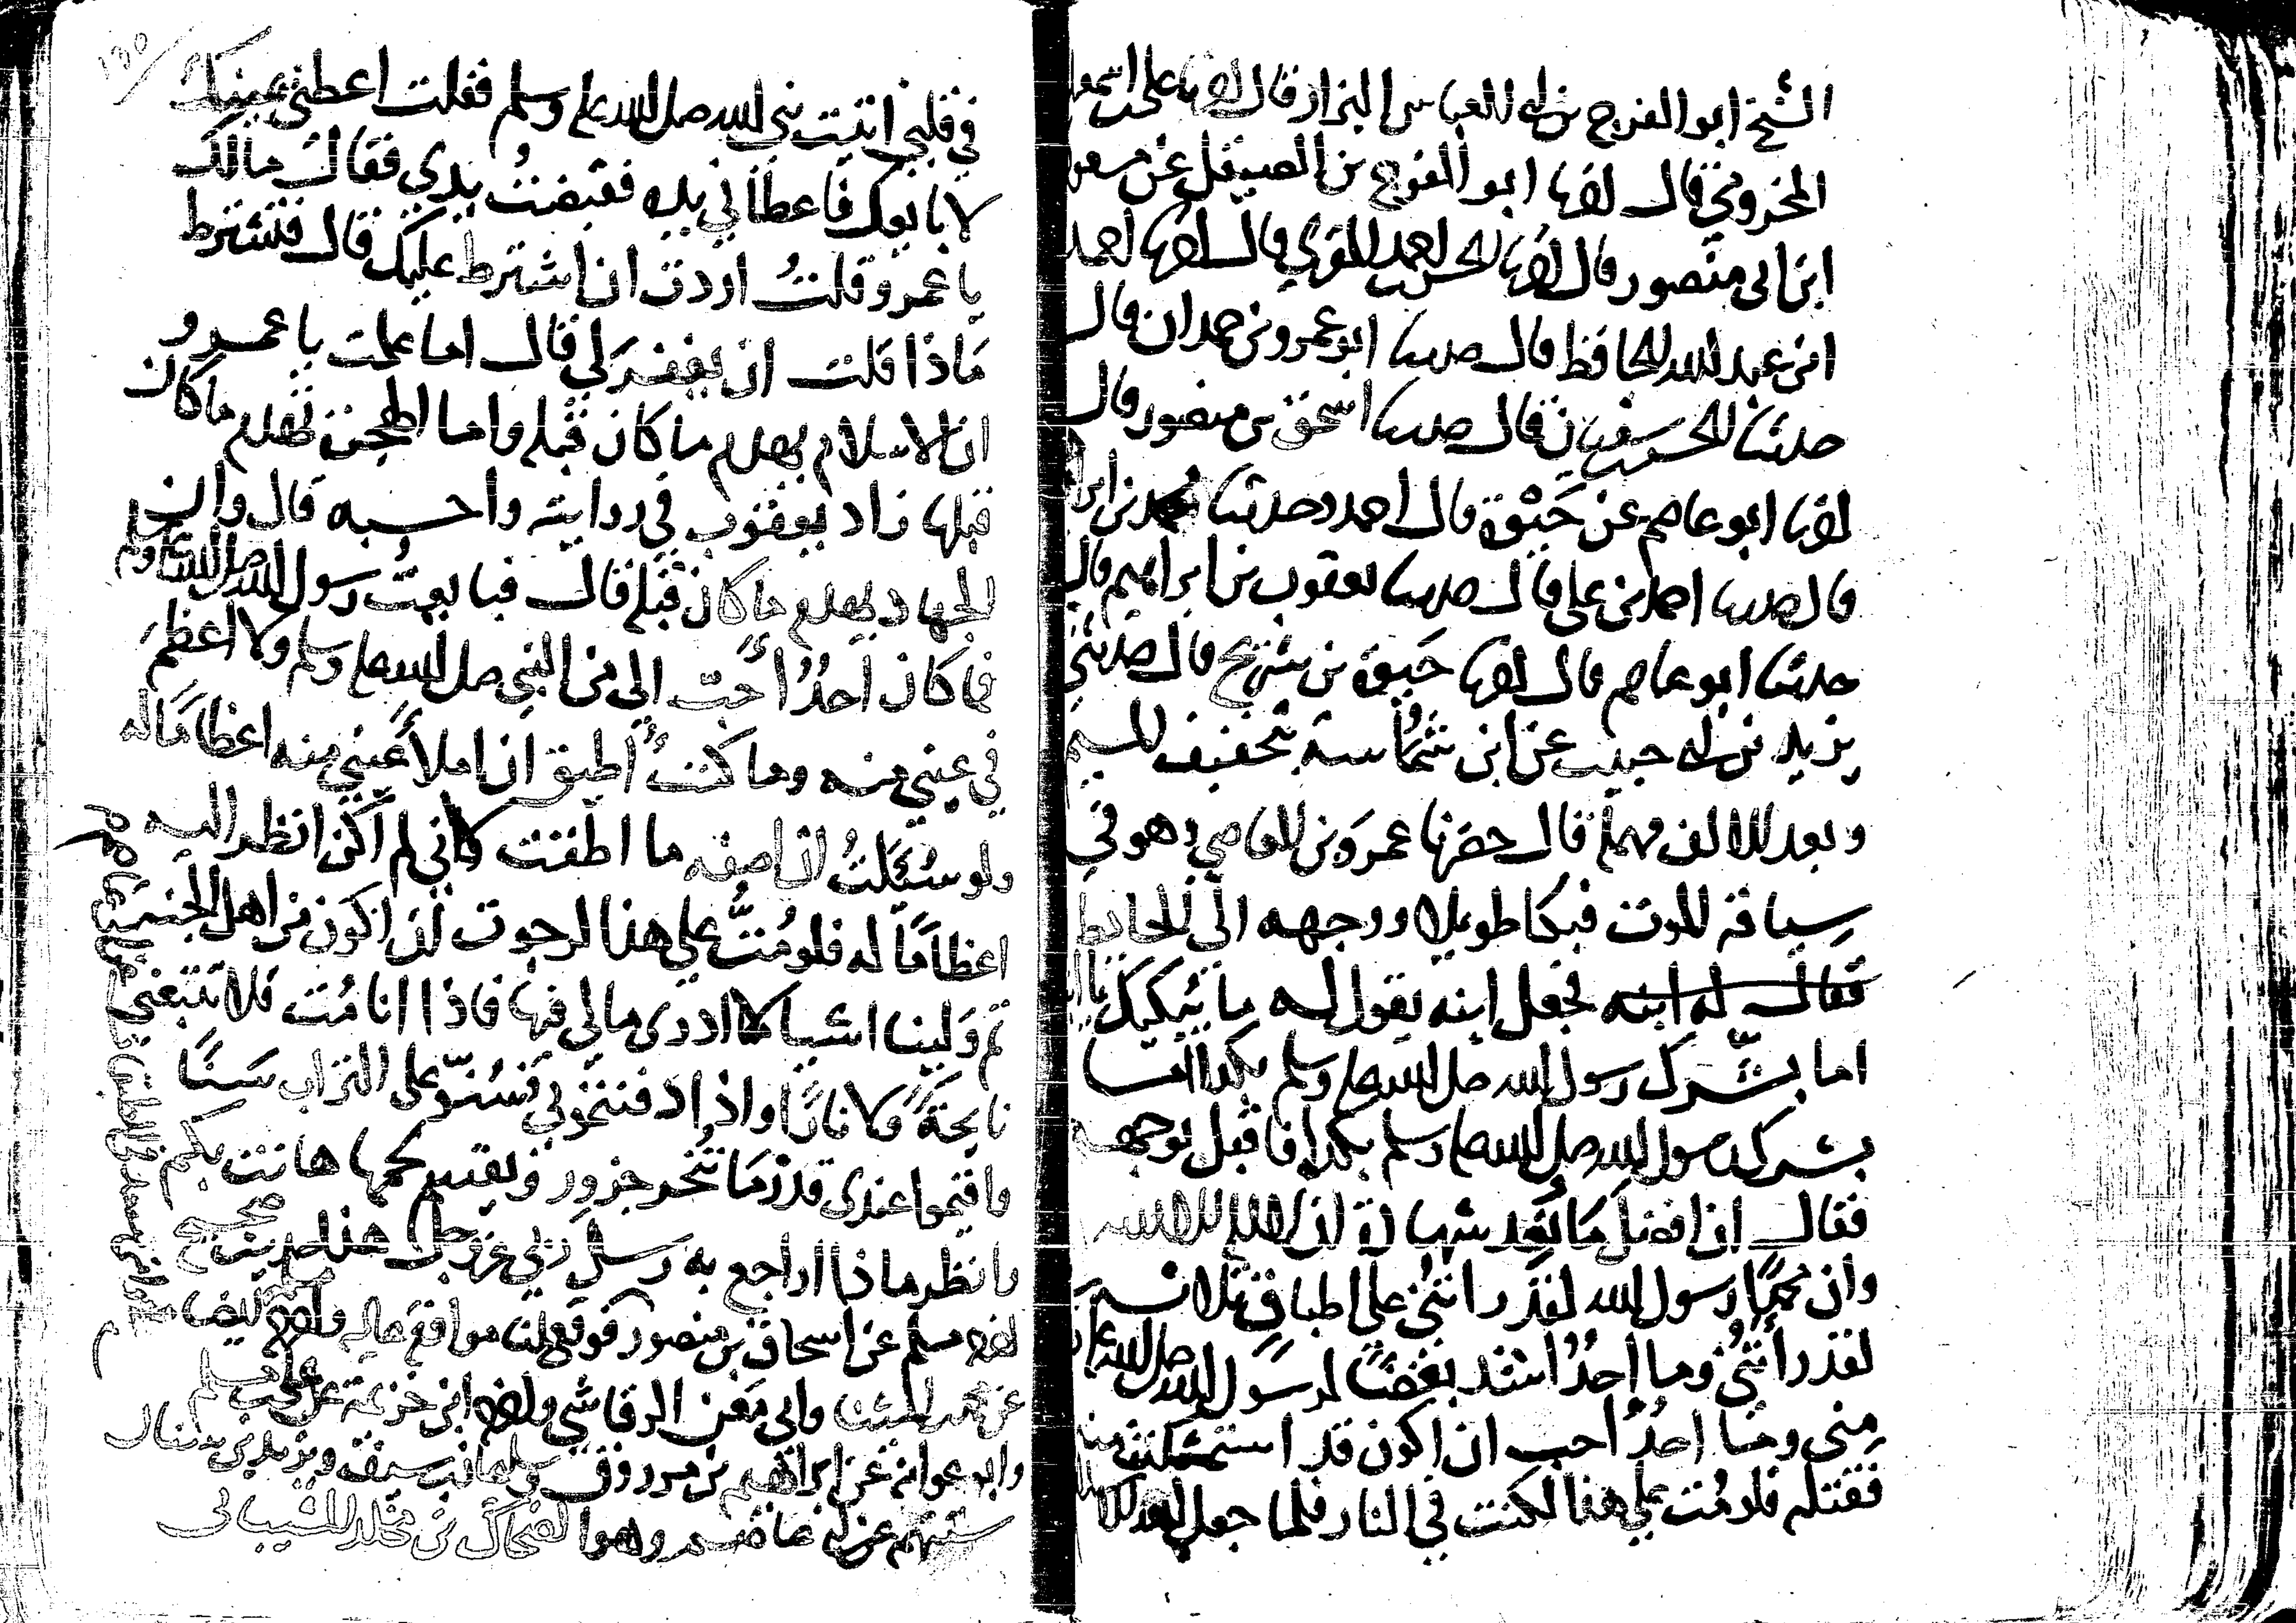 الشيخ ابو الفرج بن ابي العباس البزار قال انا علي بن اسمعيل
المخزومي قال انا ابو الفرج بن الصيقل عن مسعود
ابن ابي منصور قال انا الحسن بن احمد المقري قال انا احمد
ابن عبد الله الحافظ قال حدثنا ابو عمرو بن حمدان قال
حدثنا الحسن بن سفيان قال حدثنا اسحق بن منصور قال
انا ابو عاصم عن حيوة قال احمد وحدثنا محمد بن ابراهيم
قال حدثنا احمد بن علي قال حدثنا يعقوب بن ابراهيم قال
حدثنا ابو عاصم قال انا حيوة بن شريح قال حدثني
يزيد بن ابي حبيب عن ابن شماسة بتخفيف الميم
وبعد الالف مهملة قال حضرنا عمرو بن العاصي وهو في
سياقة الموت فبكا طويلا ووجهه الى الحايط
فقال له ابنه فجعل ابنه يقول له ما يبكيك
اما بشرك رسول الله صلى الله عليه وسلم بكذا اما
بشرك رسول الله صلى الله عليه وسلم بكذا فاقبل بوجهه
فقال ان افضل ما نعد شهادة ان لا اله الا الله
وان محمدًا رسول الله لقد رايتني على اطباق ثلاث
لقد رأيتني وما احدٌ اشد بغضًا لرسول الله صلى الله عليه
مني وما احدٌ أحب ان اكون قد استمكنت منه
فقتلته فلو مُت على هذا لكنت في النار فلما جعل الله
في قلبي اتيت نبي الله صلى الله عليه وسلم فقلت اعطني يمينك
لابايعك فاعطاني يده فقبضت يدي فقال مالك
يا عمرو قلتُ اردت ان اشترط عليك قال فتشترط
مَاذا قلت ان يغفر لي قال اما علمت يا عمرو
ان الاسلام يهدم ما كان قبله واما الهجرة تهدم ما كان
قبلها زاد يعقوب في روايته واحسبه قال وان
الجهاد يهدم ما كان قبله قال فبايعتُ رسول الله صلى الله عليه وسلم
فما كان احدٌ أحبّ الي من النبي صلى الله عليه وسلم ولا اعظم
في عيني منه وما كنتُ أطيق ان املأ عيني منه اعظامًا له
ولو سُئلتُ ان اصفه ما اطقت كاني لم اكن انظر اليه
اعظامًا له فلو مُتّ على هذا لرجوت ان اكون من اهل الجنة
ثم وَلينا اشيا لا ادري مالي فيها فاذا انا مُت فلا تتبعني
نايحَةً ولا نارًا واذا دفنتموني فسُنّو علي التراب سَنًّا
واقيموا عندي قدر مَا تُنحر جزور ويقسم لحمها استانس بكم
وانظر ماذا اراجع به رسل ربي عز وجل هذا حديث صحيح
اخرجه مسلم عن اسحاق بن منصور فوقع لنا موافقة عالية واخرجه ايضا
عن محمد بن المثنى وابي معن الرقاشي واخرجه ابن خزيمة
وابو عوانة عن ابراهيم بن مرزوق وسليمان بن سيف ويزيد بن سنان
ستتهم عن ابي عاصم وهو الضحاك بن مخلد الشيباني